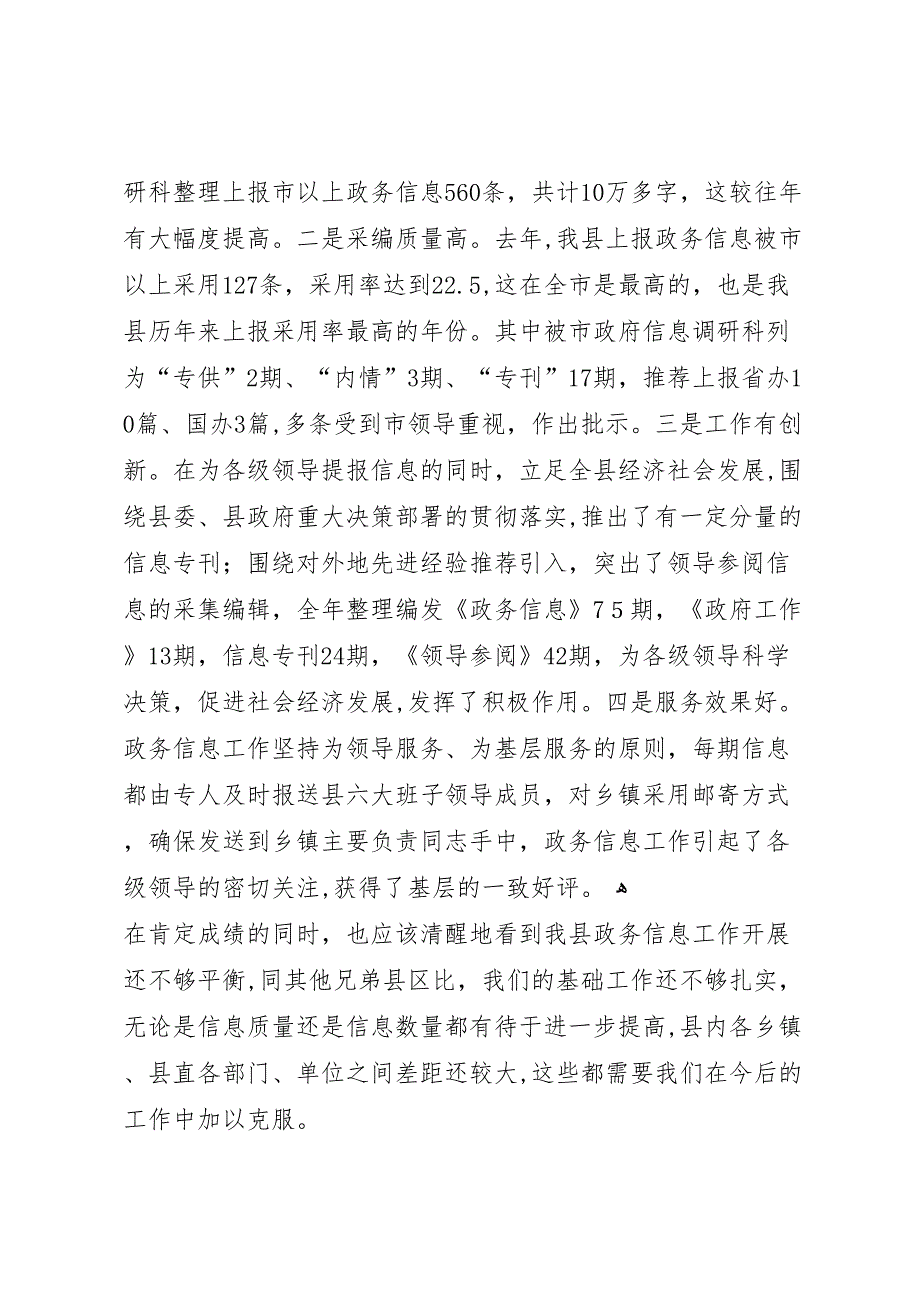 研科整理上报市以上政务信息560条，共计10万多字，这较往年
有大幅度提高。二是采编质量高。去年,我县上报政务信息被市
以上采用127条，采用率达到22.5,这在全市是最高的，也是我
县历年来上报采用率最高的年份。其中被市政府信息调研科列
为“专供”2期、“内情”3期、“专刊”17期，推荐上报省办1
0篇、国办3篇,多条受到市领导重视，作出批示。三是工作有创
新。在为各级领导提报信息的同时，立足全县经济社会发展,围
绕县委、县政府重大决策部署的贯彻落实,推出了有一定分量的
信息专刊；围绕对外地先进经验推荐引入，突出了领导参阅信
息的采集编辑，全年整理编发《政务信息》７５期，《政府工作
》13期，信息专刊24期，《领导参阅》42期，为各级领导科学
决策，促进社会经济发展,发挥了积极作用。四是服务效果好。
政务信息工作坚持为领导服务、为基层服务的原则，每期信息
都由专人及时报送县六大班子领导成员，对乡镇采用邮寄方式
，确保发送到乡镇主要负责同志手中，政务信息工作引起了各
级领导的密切关注,获得了基层的一致好评。 ﻫ
在肯定成绩的同时，也应该清醒地看到我县政务信息工作开展
还不够平衡,同其他兄弟县区比，我们的基础工作还不够扎实，
无论是信息质量还是信息数量都有待于进一步提高,县内各乡镇
、县直各部门、单位之间差距还较大,这些都需要我们在今后的
工作中加以克服。